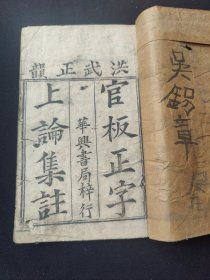 洪武正韻
官板正字
華興書局梓行
上論集註
吳錫章